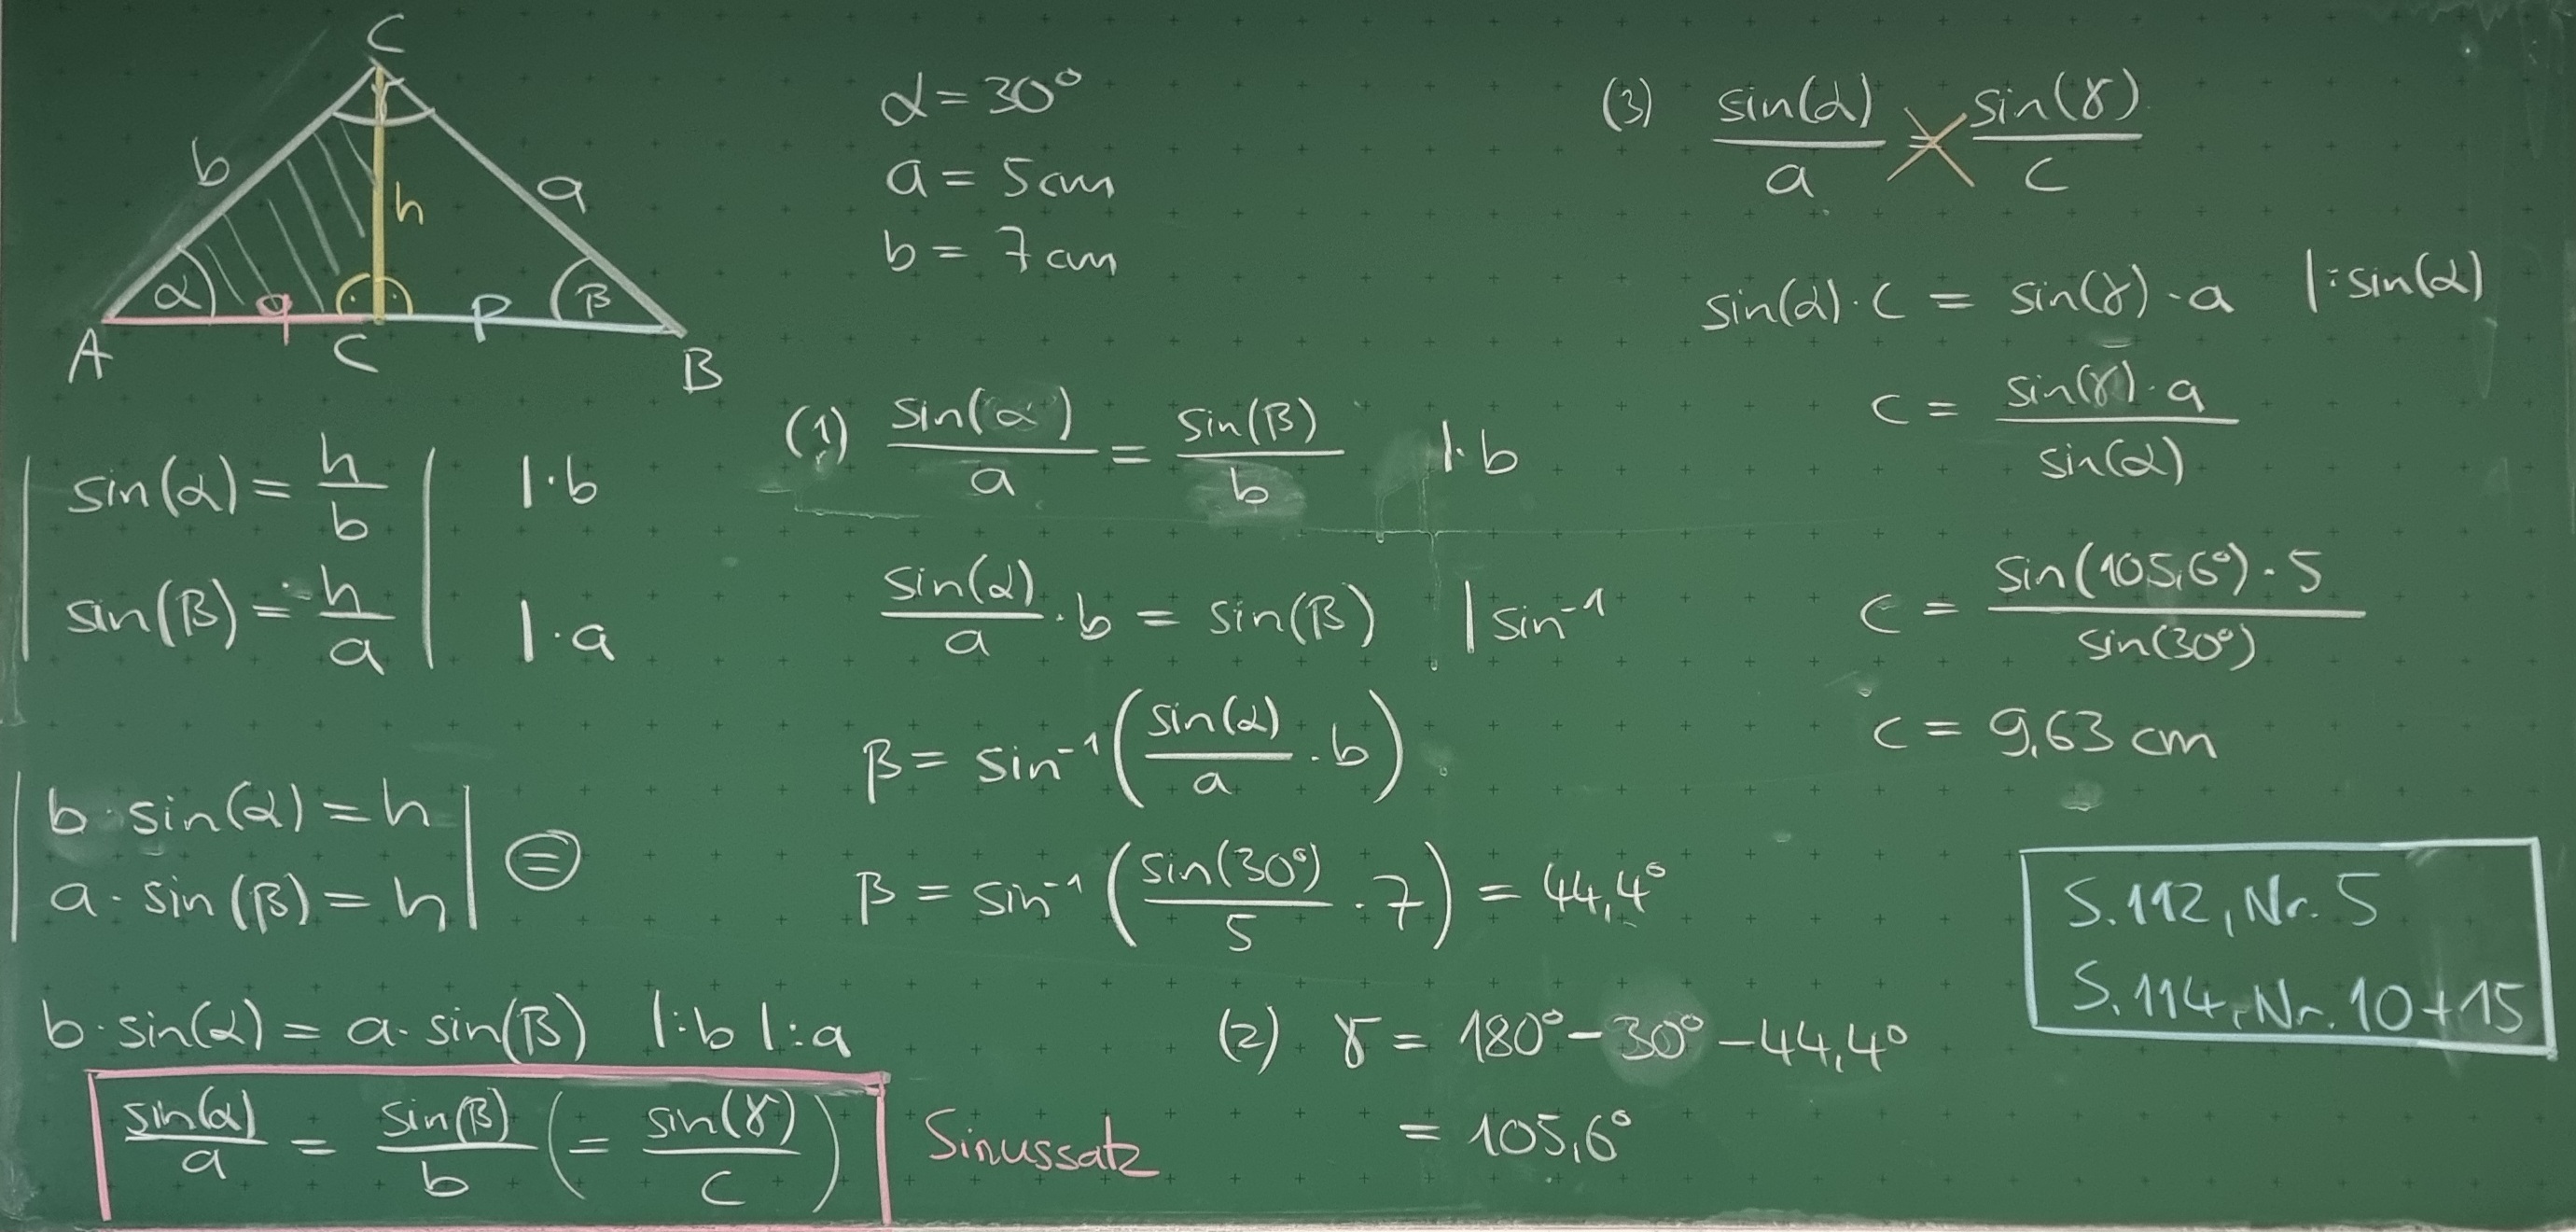 C
b
a
h
α
q
p
β
A
C
B
| sin(α) = h/b | |·b
| sin(β) = h/a | |·a
| b·sin(α) = h |
| a·sin(β) = h | ⊜
b·sin(α) = a·sin(β) |:b |:a
sin(α)/a = sin(β)/b (= sin(γ)/c) Sinussatz
α = 30°
a = 5cm
b = 7cm
(1) sin(α)/a = sin(β)/b |·b
sin(α)/a · b = sin(β) | sin⁻¹
β = sin⁻¹(sin(α)/a · b)
β = sin⁻¹(sin(30°)/5 · 7) = 44,4°
(2) γ = 180° – 30° – 44,4°
= 105,6°
(3) sin(α)/a = sin(γ)/c
sin(α)·c = sin(γ)·a |:sin(α)
c = sin(γ)·a/sin(α)
c = sin(105,6°)·5/sin(30°)
c = 9,63 cm
S.112, Nr. 5
S.114, Nr. 10+15